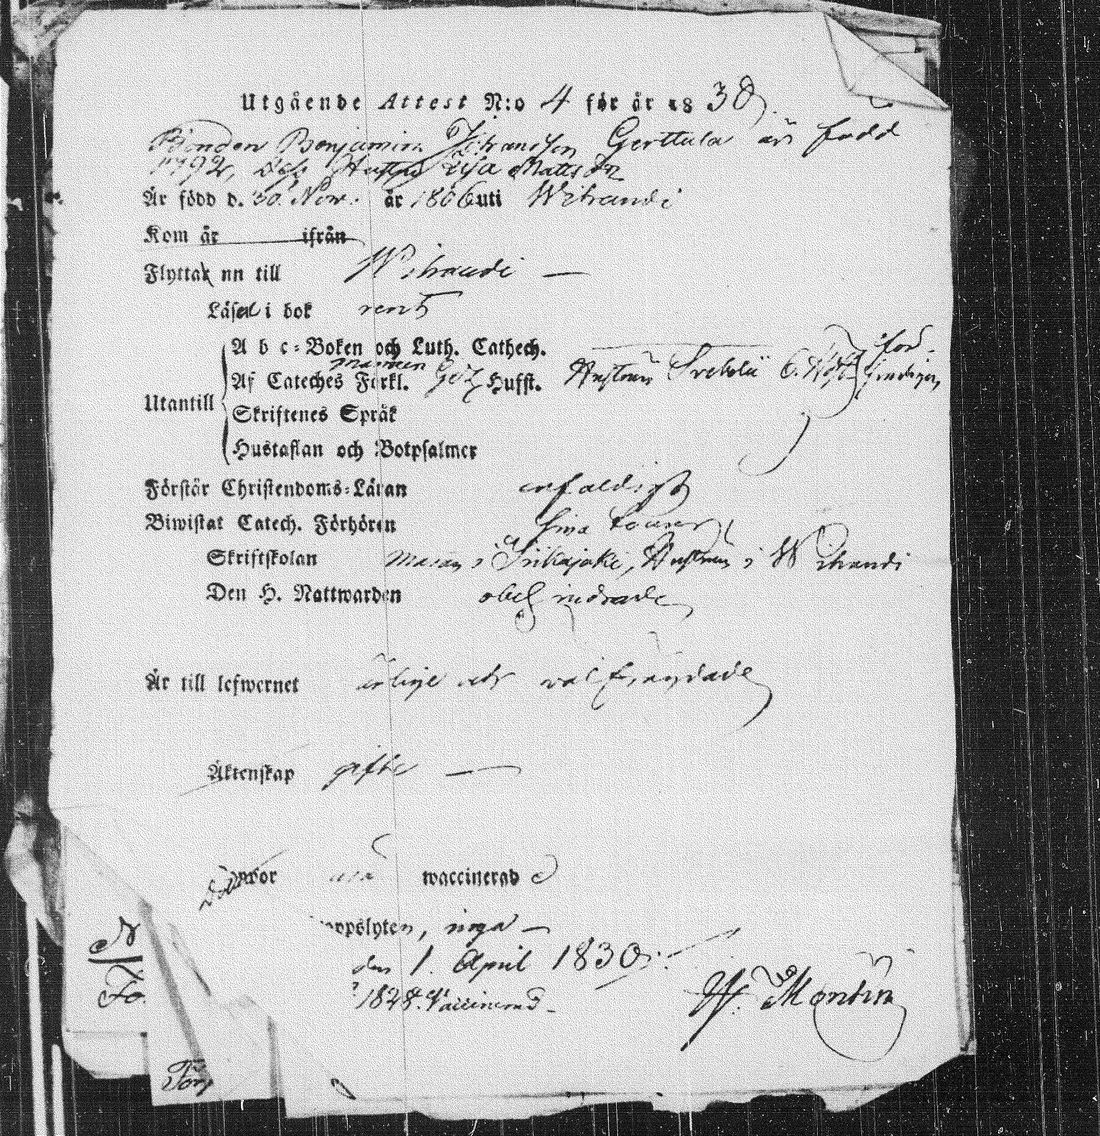 Utgående Attest N:o 4 för år 1830.
Bonden Benjamin Johansson Gerttula är född
1792, dess Hustru Lisa Matts Dr
Är född d. 30 Nov. år 1806 uti Wihandi
Kom år ifrån
Flyttar nu till Wihandi —
Läser i bok rent
A b c-Boken och Luth. Cathech.
mannen
Af Cateches Förkl. Hufst. Hustrun Svebilii 6. för-
Utantill
Skriftenes Språk
Hustaflan och Botpsalmer
Förstår Christendoms-Läran enfaldigt
Biwistat Catech. Förhören sina
Skriftskolan mannen i, Hustrun i Wihandi
Den H. Nattwarden obehindrade
Är till lefwernet ärlige och wäl frägdade
Äktenskap gifte —
waccinerad
inga —
den 1. April 1830.
1828. Vaccinerad.